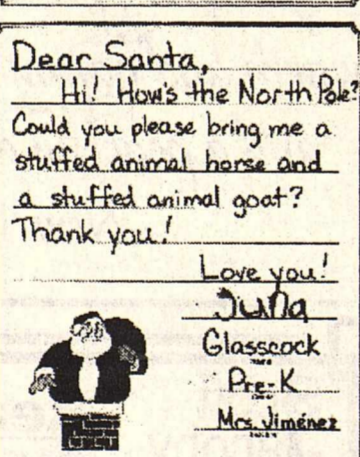 Dear Santa,
Hi! How's the North Pole?
Could you please bring me a
stuffed animal horse and
a stuffed animal goat?
Thank you!
Love you!
Glasscock
Pre-K
Mrs. Jiménez